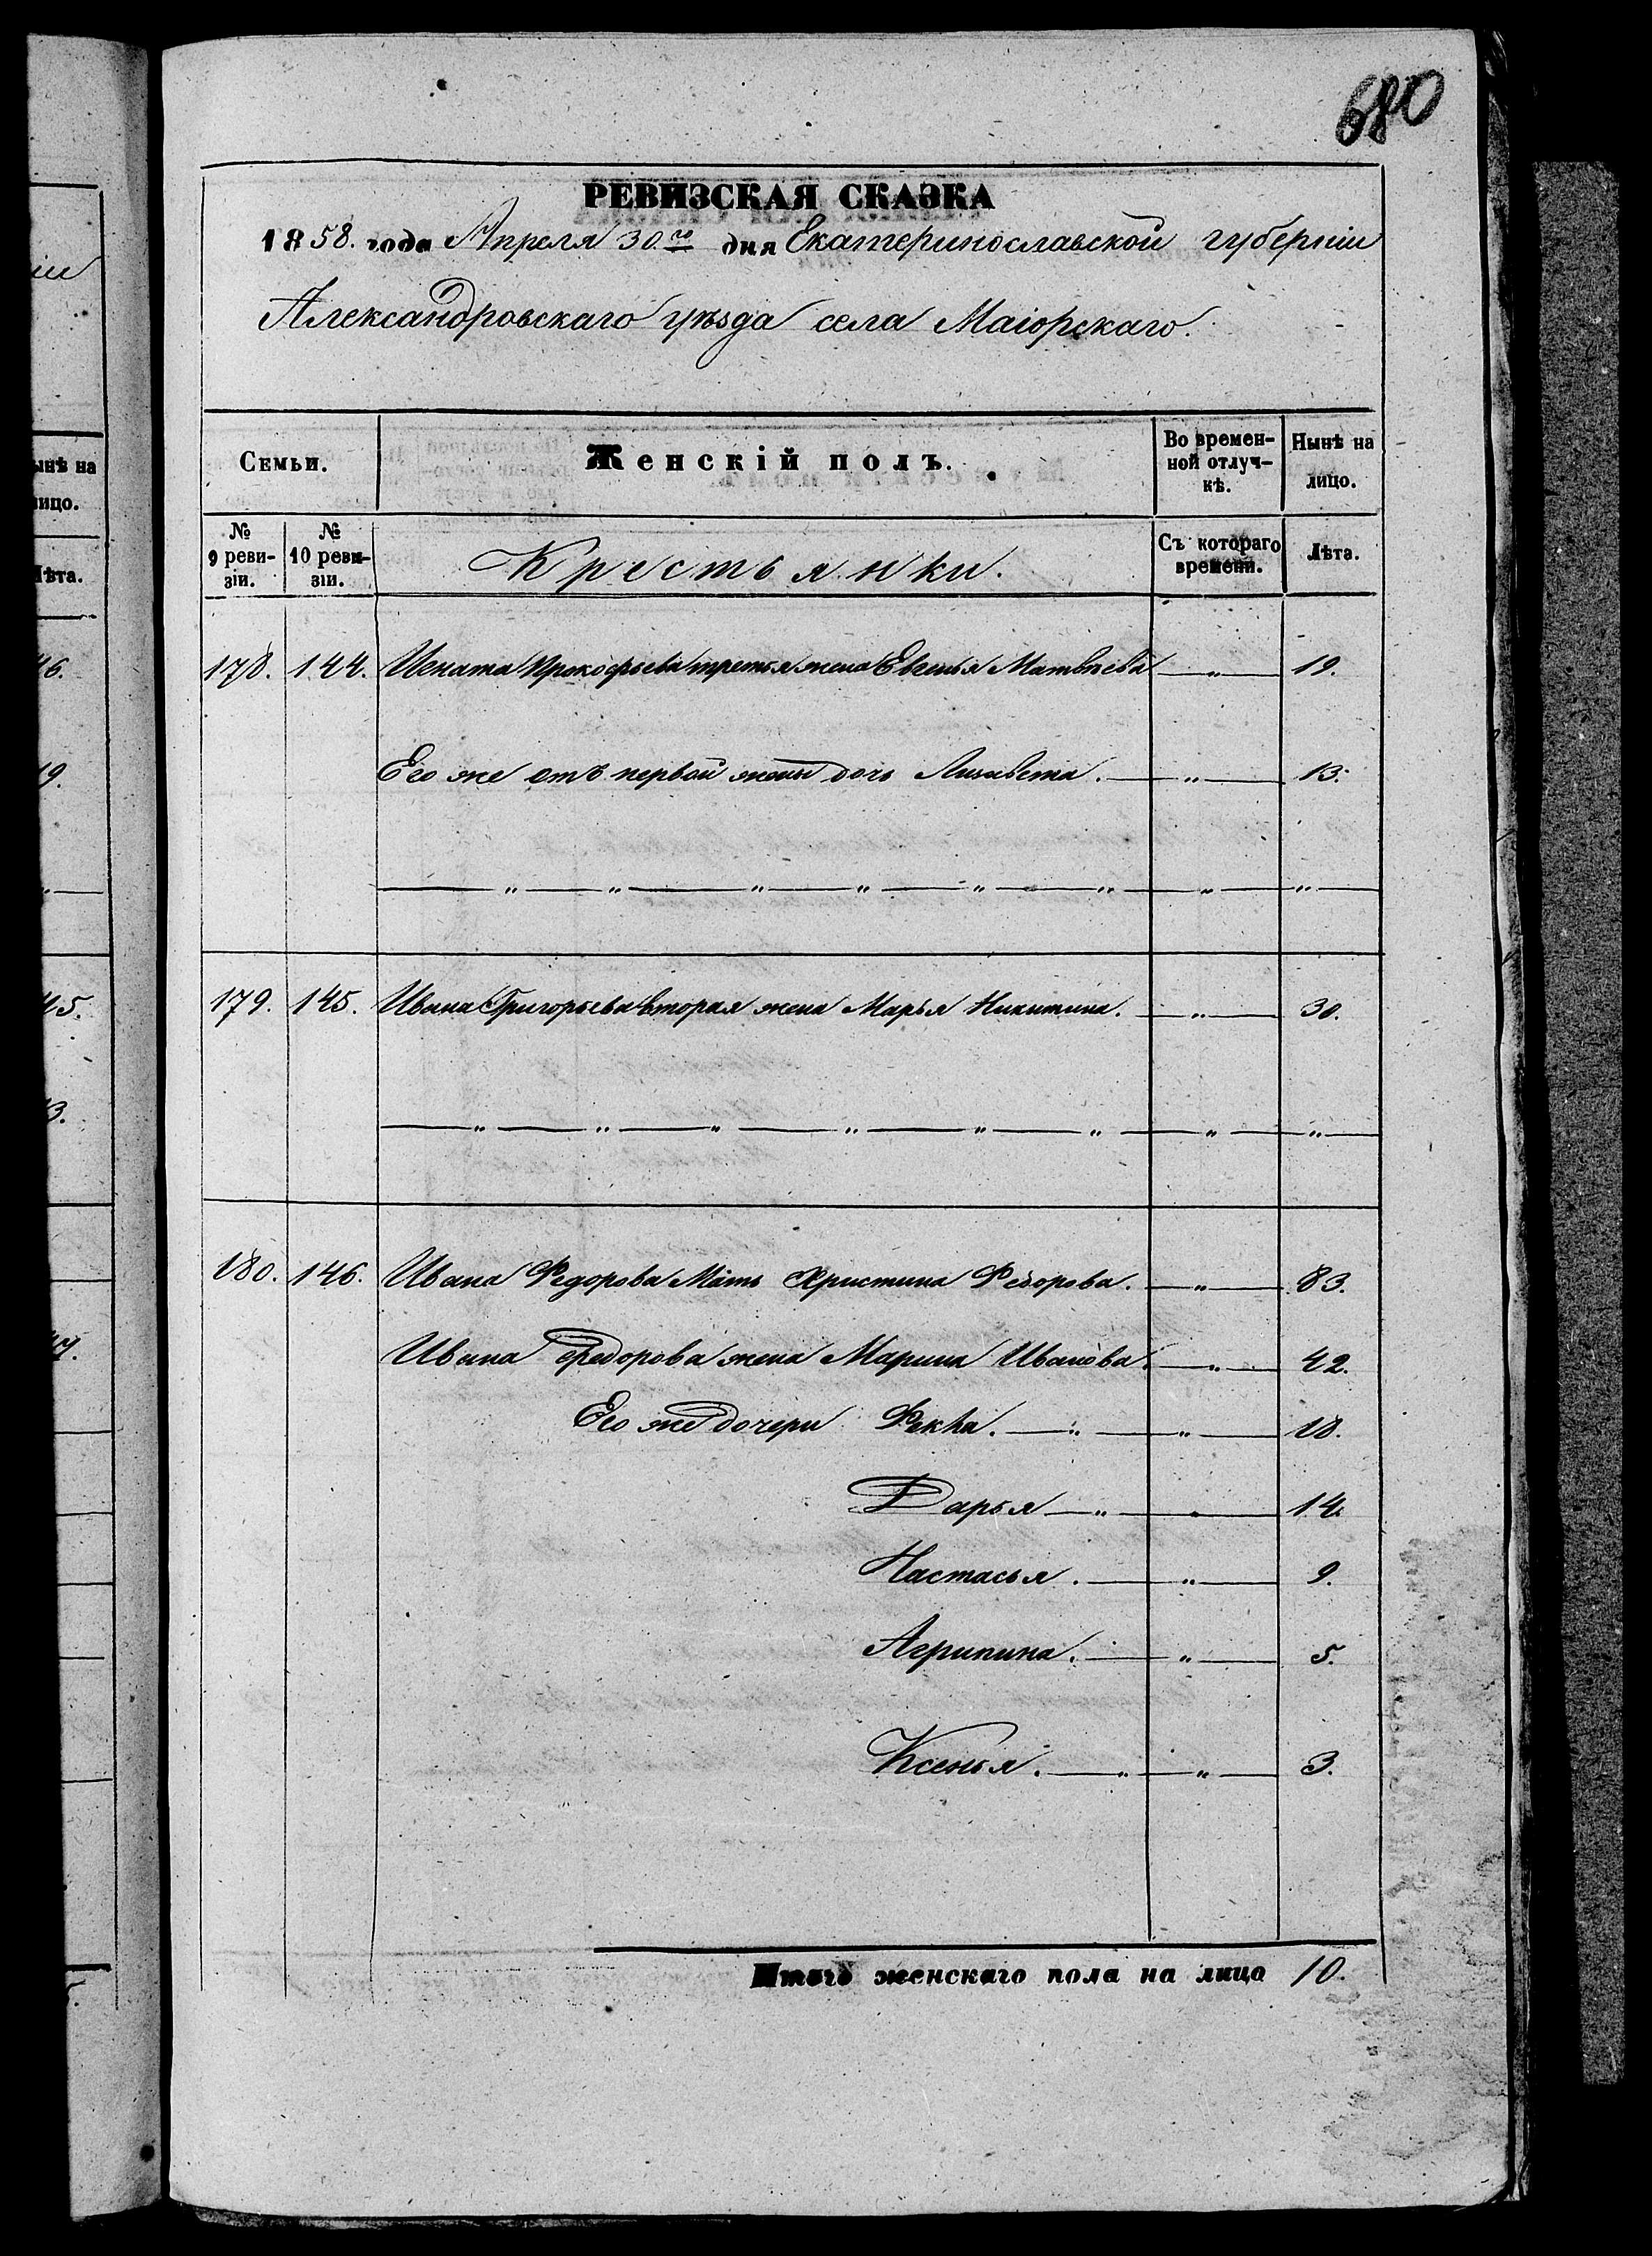 680
РЕВИЗСКАЯ СКАЗКА
1858. года Апреля 30.го дня Екатеринославской губернiи
Александровскаго уѣзда села Маiорскаго.
Семьи. Женскiй полъ. Во времен- Нынѣ на
ной отлуч- лицо.
кѣ.
№ № Крестьянки. Съ котораго Лѣта.
9 реви- 10 реви- времени.
зiи. зiи.
178. 144. Игната Прокофьева третья жена Евгенья Матвѣева — " — 19.
Его же отъ первой жены дочь Лизавета. — " — 13.
— " — " — " — " — " — " — " — " —
179. 145. Ивана Григорьева вторая жена Марья Никитина. — " — 30.
— " — " — " — " — " — " — " — " —
180. 146. Ивана Федорова Мать Христина Федорова. — " — 83.
Ивана Федорова жена Марина Иванова. — " — 42.
Его же дочери Фекла. — " — " — 18.
Дарья — " — " — 14.
Настасья. — " — 9.
Агрипина. — " — 5.
Ксенья. — " — " — 3.
Итого женскаго пола на лицо 10.
нiи
ынѣ на
лицо.
Лѣта.